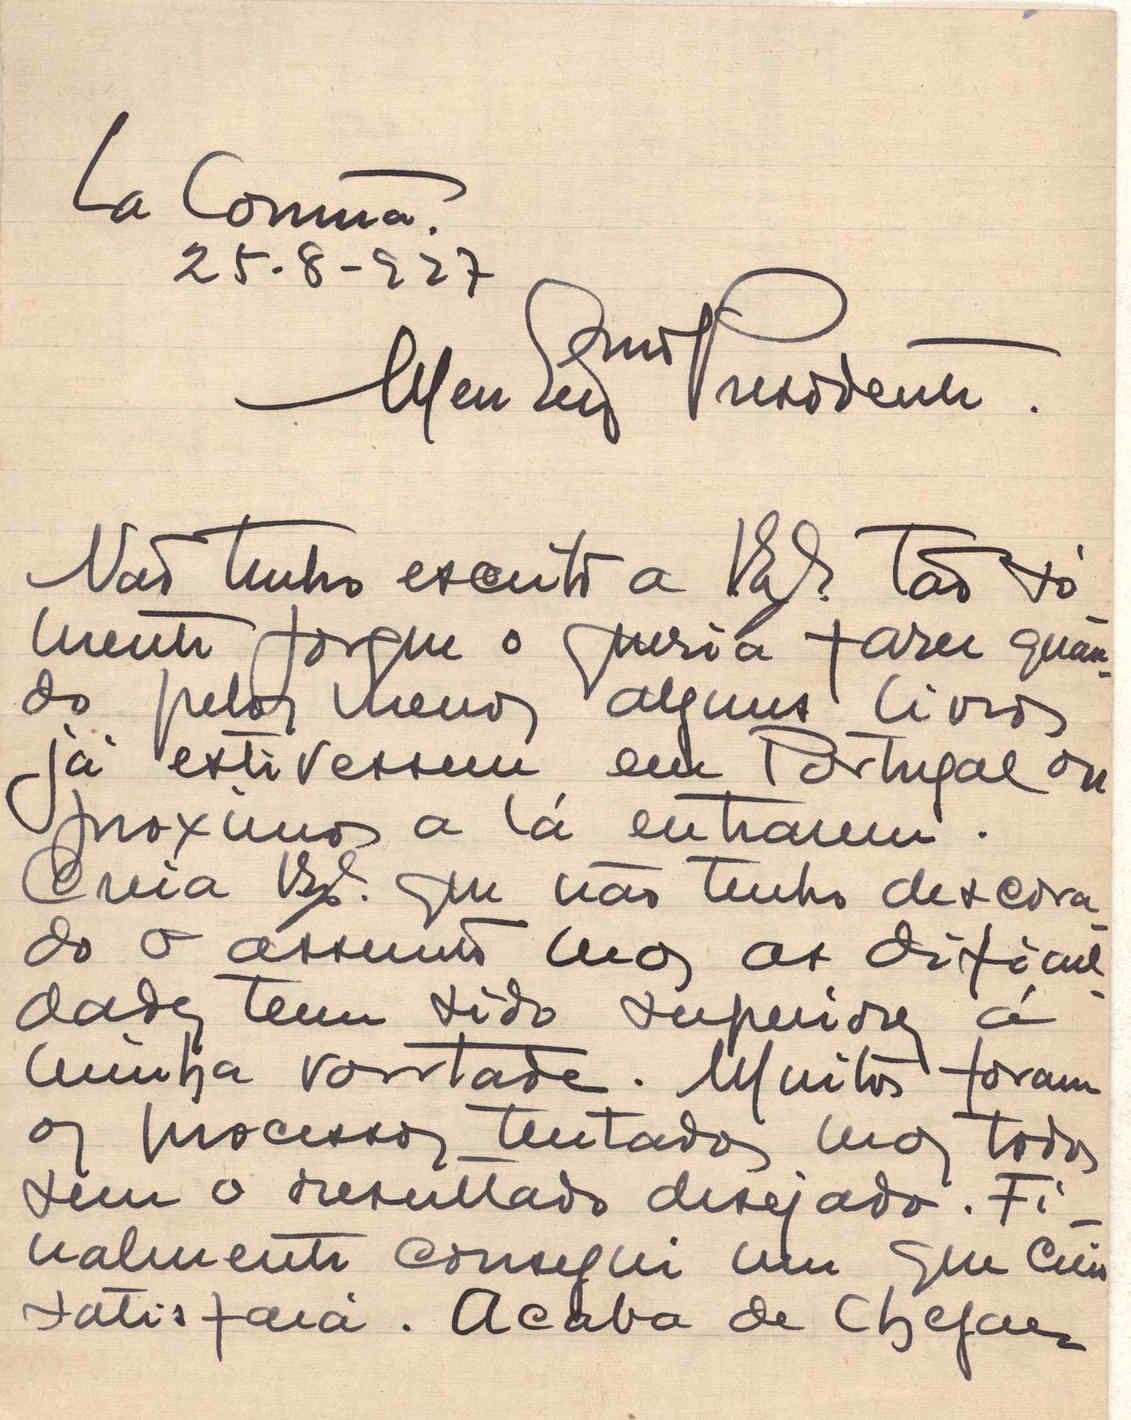 La Coruña.
25-8-927
Meu Exmo Presidente.
Não tenho escrito a V. Exª. tão só
mente porque o queria fazer quan-
do pelos menos alguns livros
já estivessem em Portugal ou
proximos a lá entrarem.
Creia V. Exª. que não tenho descora-
do o assunto mas as dificul-
dades tem sido superiores á
minha vontade. Muitos foram
os processos tentados mas todos
sem o resultado desejado. Fi-
nalmente consegui um que creio
satisfará. Acaba de chegar